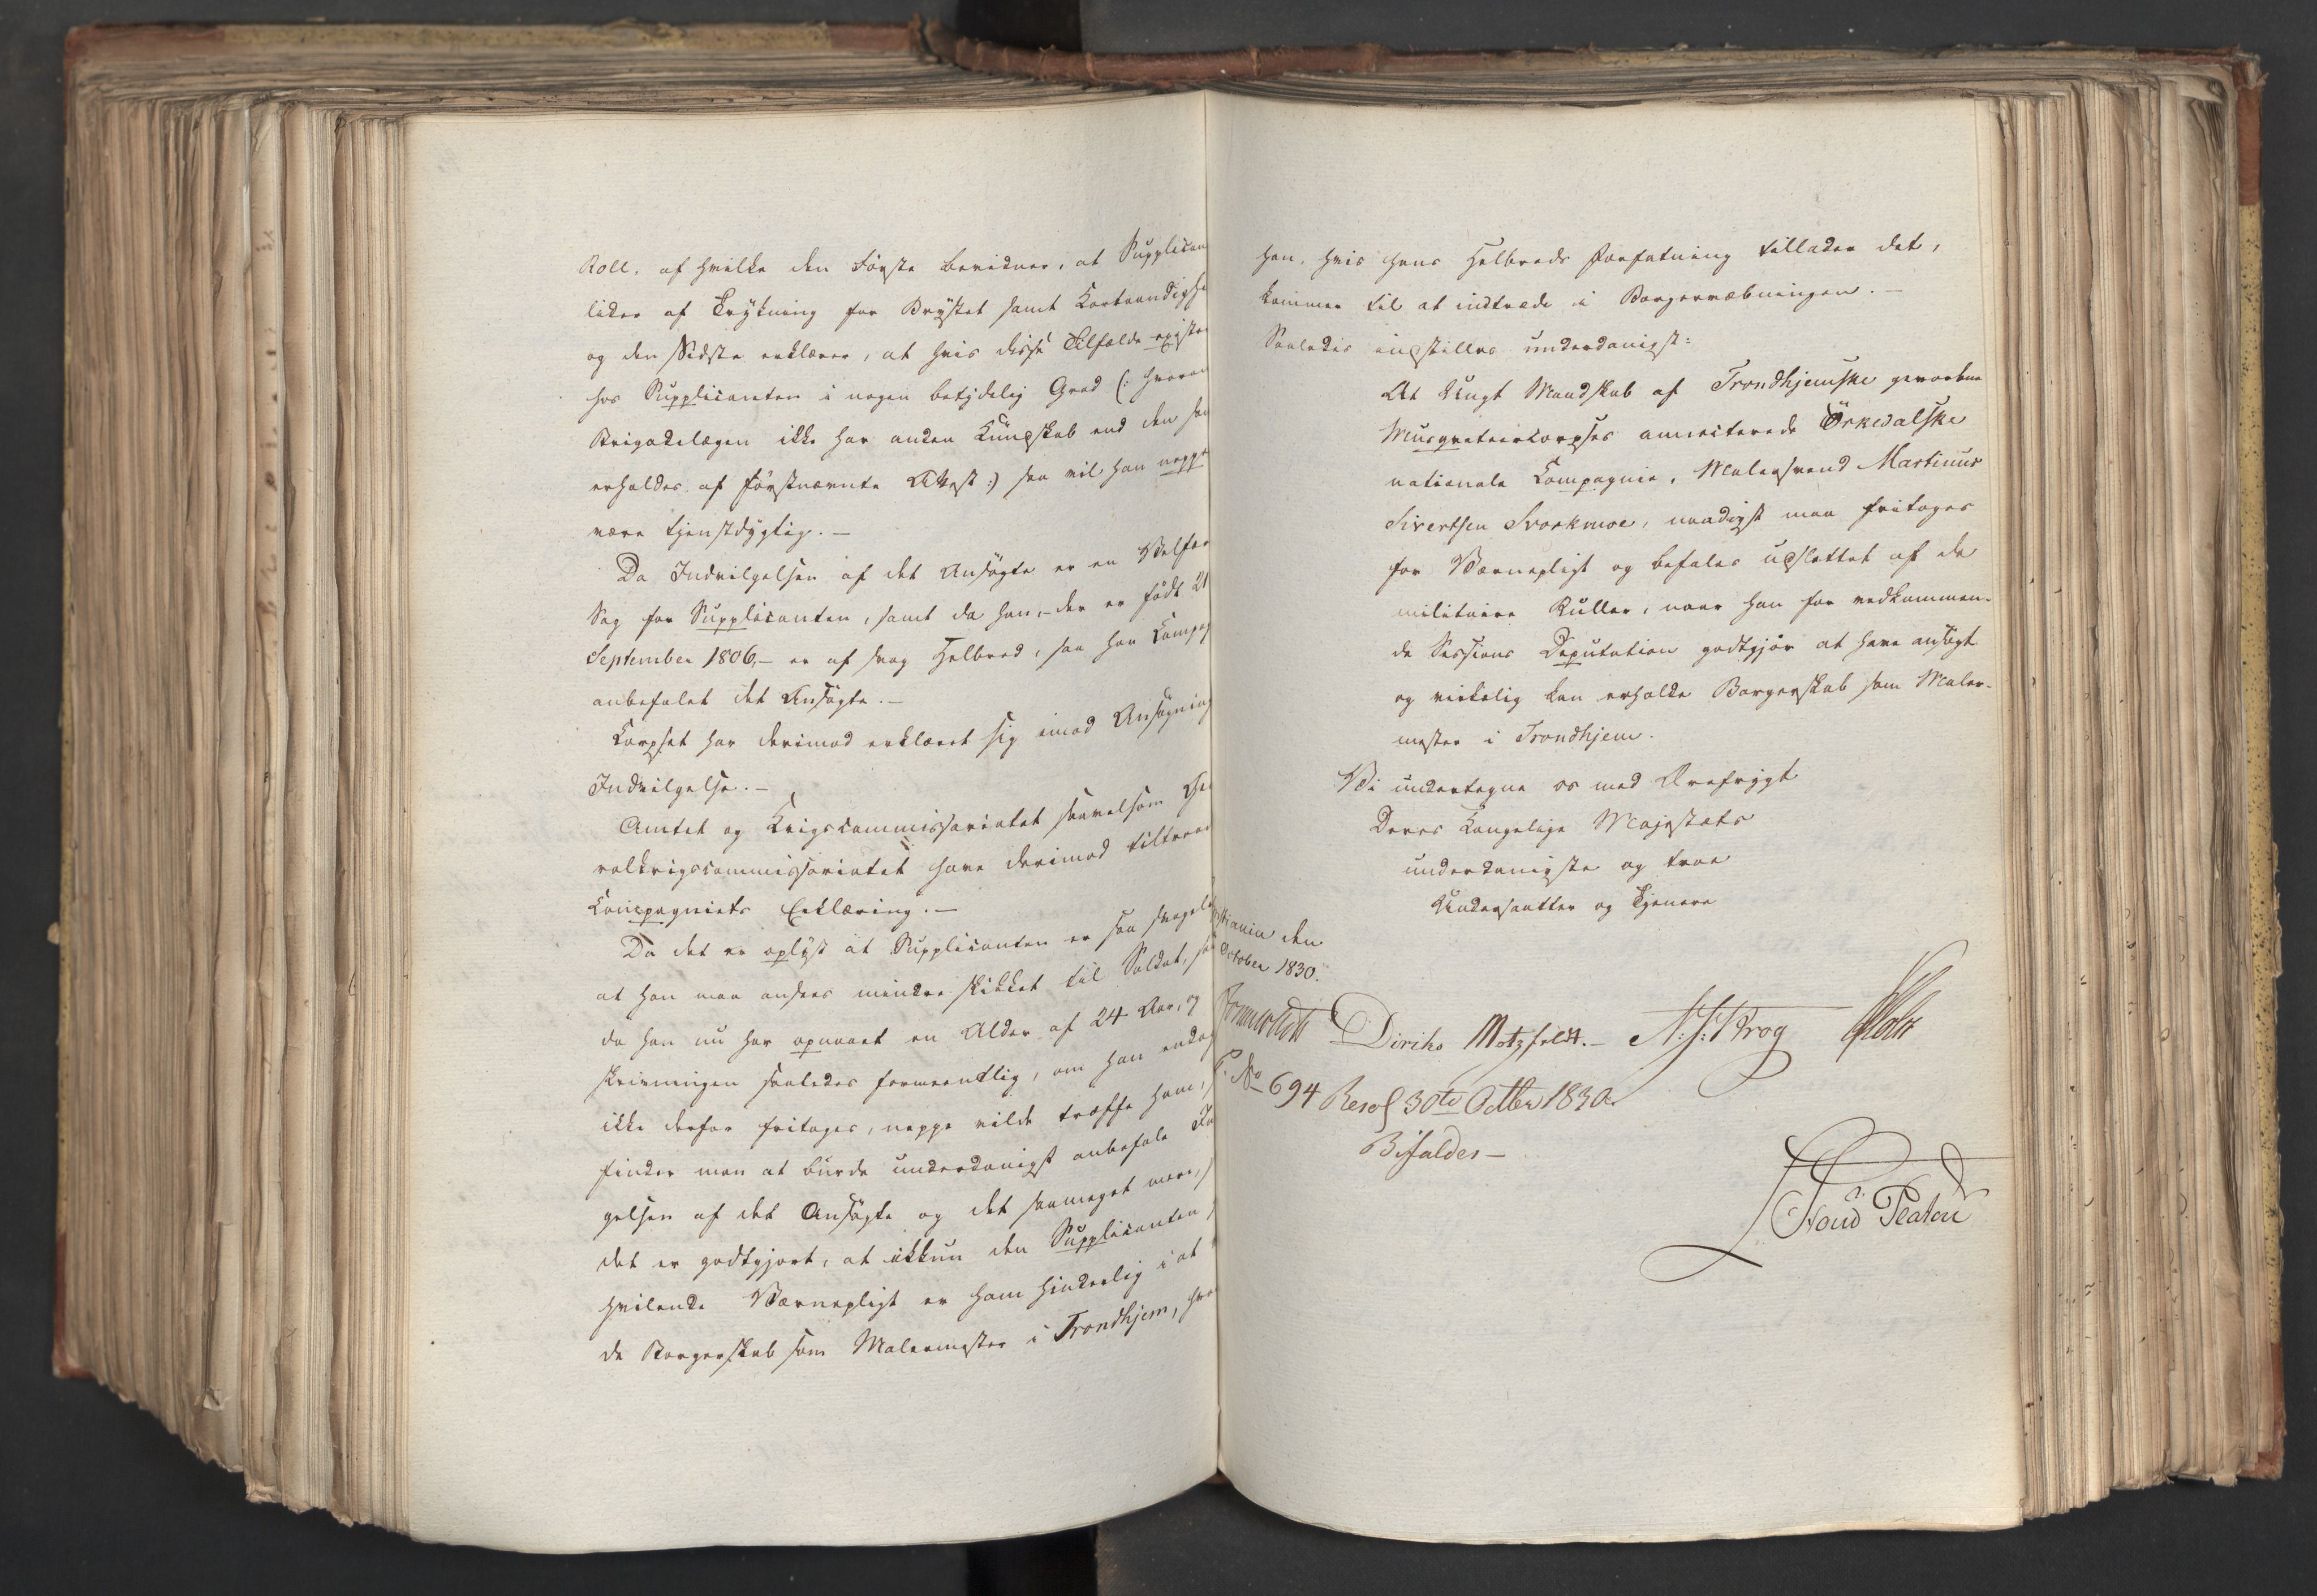 Roll, af hvilke den Første bevidner, at Supplican
lider af Trykning for Brystet samt Kortaandighe
og den Sidste erklærer, at hvis disse Tilfælde existe
hos Supplicanten i nogen betydelig Grad (: hvorom
Brigadelægen ikke har anden Kundskab end den han
erholder af førstnævnte Attest :) saa vil han neppe
være tjenstdygtig. –
Da Indvilgelsen af det Ansøgte er en Velfær
Sag for Supplicanten, samt da han, – der er født 21
September 1806, – er af svag Helbred, saa har Compag
anbefalet det Ansøgte. –
Corpset har derimod erklæret sig imod Ansøgning
Indvilgelse. –
Amtet og Krigscommissariatet saavelsom Gene
ralkrigscommissariatet have derimod tiltraad
Compagniets Erklæring. –
Da det er oplyst at Supplicanten er saa svagel
at han maa ansees mindre skikket til Soldat, sa
da han nu har opnaaet en Alder af 24 Aar, og
skrivningen saaledes formeentlig, om han endog
ikke derfor fritages, neppe vilde træffe ham,
finder man at burde underdanigst anbefale In
gelsen af det Ansøgte og det saameget mere, s
det er godtgjort, at ikkun den Supplicanten
hvilende Værnepligt er ham hinderlig i at
de Borgerskab som Malermester i Trondhjem, hvo
han, hvis hans Helbreds Forfatning tillader det,
kommer til at indtræde i Borgervæbningen. –
Saaledes indstilles underdanigst:
At Ungt Mandskab af Trondhjemske gevorbne
Musqueteercorpses annecterede Örkedalske
nationale Compagnie, Malersvend Martinus
Sivertsen Svorkmoe, naadigst maa fritages
for Værnepligt og befales udslettet af de
militaire Ruller, naar han for vedkommen-
de Sessions Deputation godtgjør at have ansøgt
og virkelig kan erholde Borgerskab som Maler-
mester i Trondhjem.
Vi undertegne os med Ærefrygt
Deres Kongelige Majestæts
underdanigste og troe
Undersaatter og Tjenere
stiania den
October 1830.
Diriks Motzfeldt. – N: J: Krog Holst
P. No 694 Resol 30te Octbr 1830.
Bifaldes –